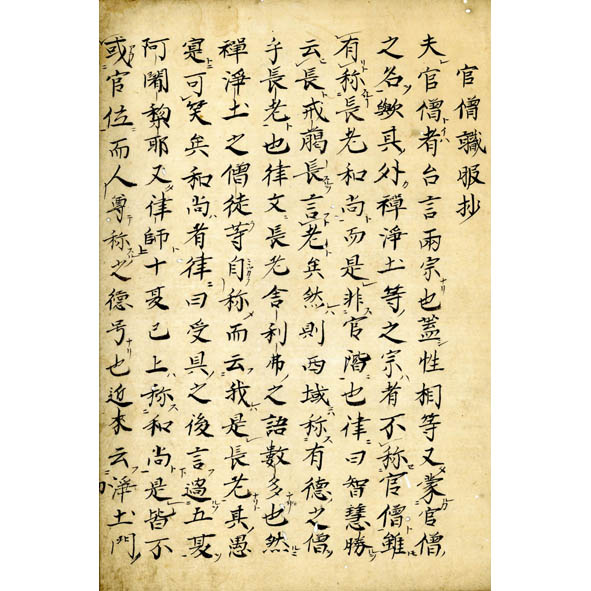 官僧職服抄
夫官僧者台言両宗也蓋性相等又蒙官僧
之名歟其外禅淨土等之宗者不称官僧雖
有称長老和尚而是非官階也律曰智慧勝
云長戒﨟長言老矣然則西域称有德之僧
乎長老也律文長老舎利弗之語數多也然
禅淨土之僧徒等自称而云我是長老其愚
寔可笑矣和尚者律曰受具之後言過五夏
阿闍黎耶又律師十夏已上称和尚是皆不
或官位而人尊称之德号也近来云淨土門